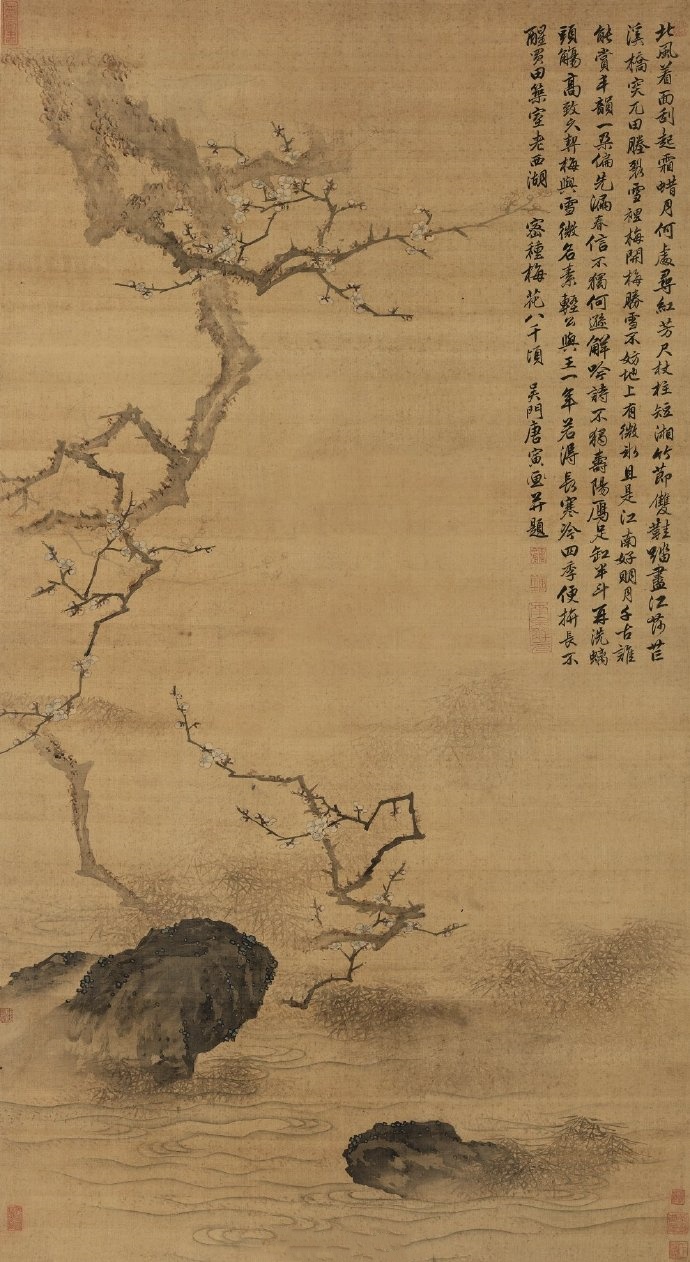 北風着面刮起霜蜡月何處尋紅芳尺杖柱短湘竹節雙鞋踏盡江
溪橋突兀田塍裂雪裡梅開梅勝雪不妨地上有微冰且是江南好明月千古誰
能賞丰韻一朵偏先漏春信不獨何遜解吟詩不獨壽陽
頭觴高致久契梅與雪徵名素輕公與王一年若得長寒冷四季便拚長不
醒買田築室老西湖 密種梅花八千頃 吳門唐寅畫并題